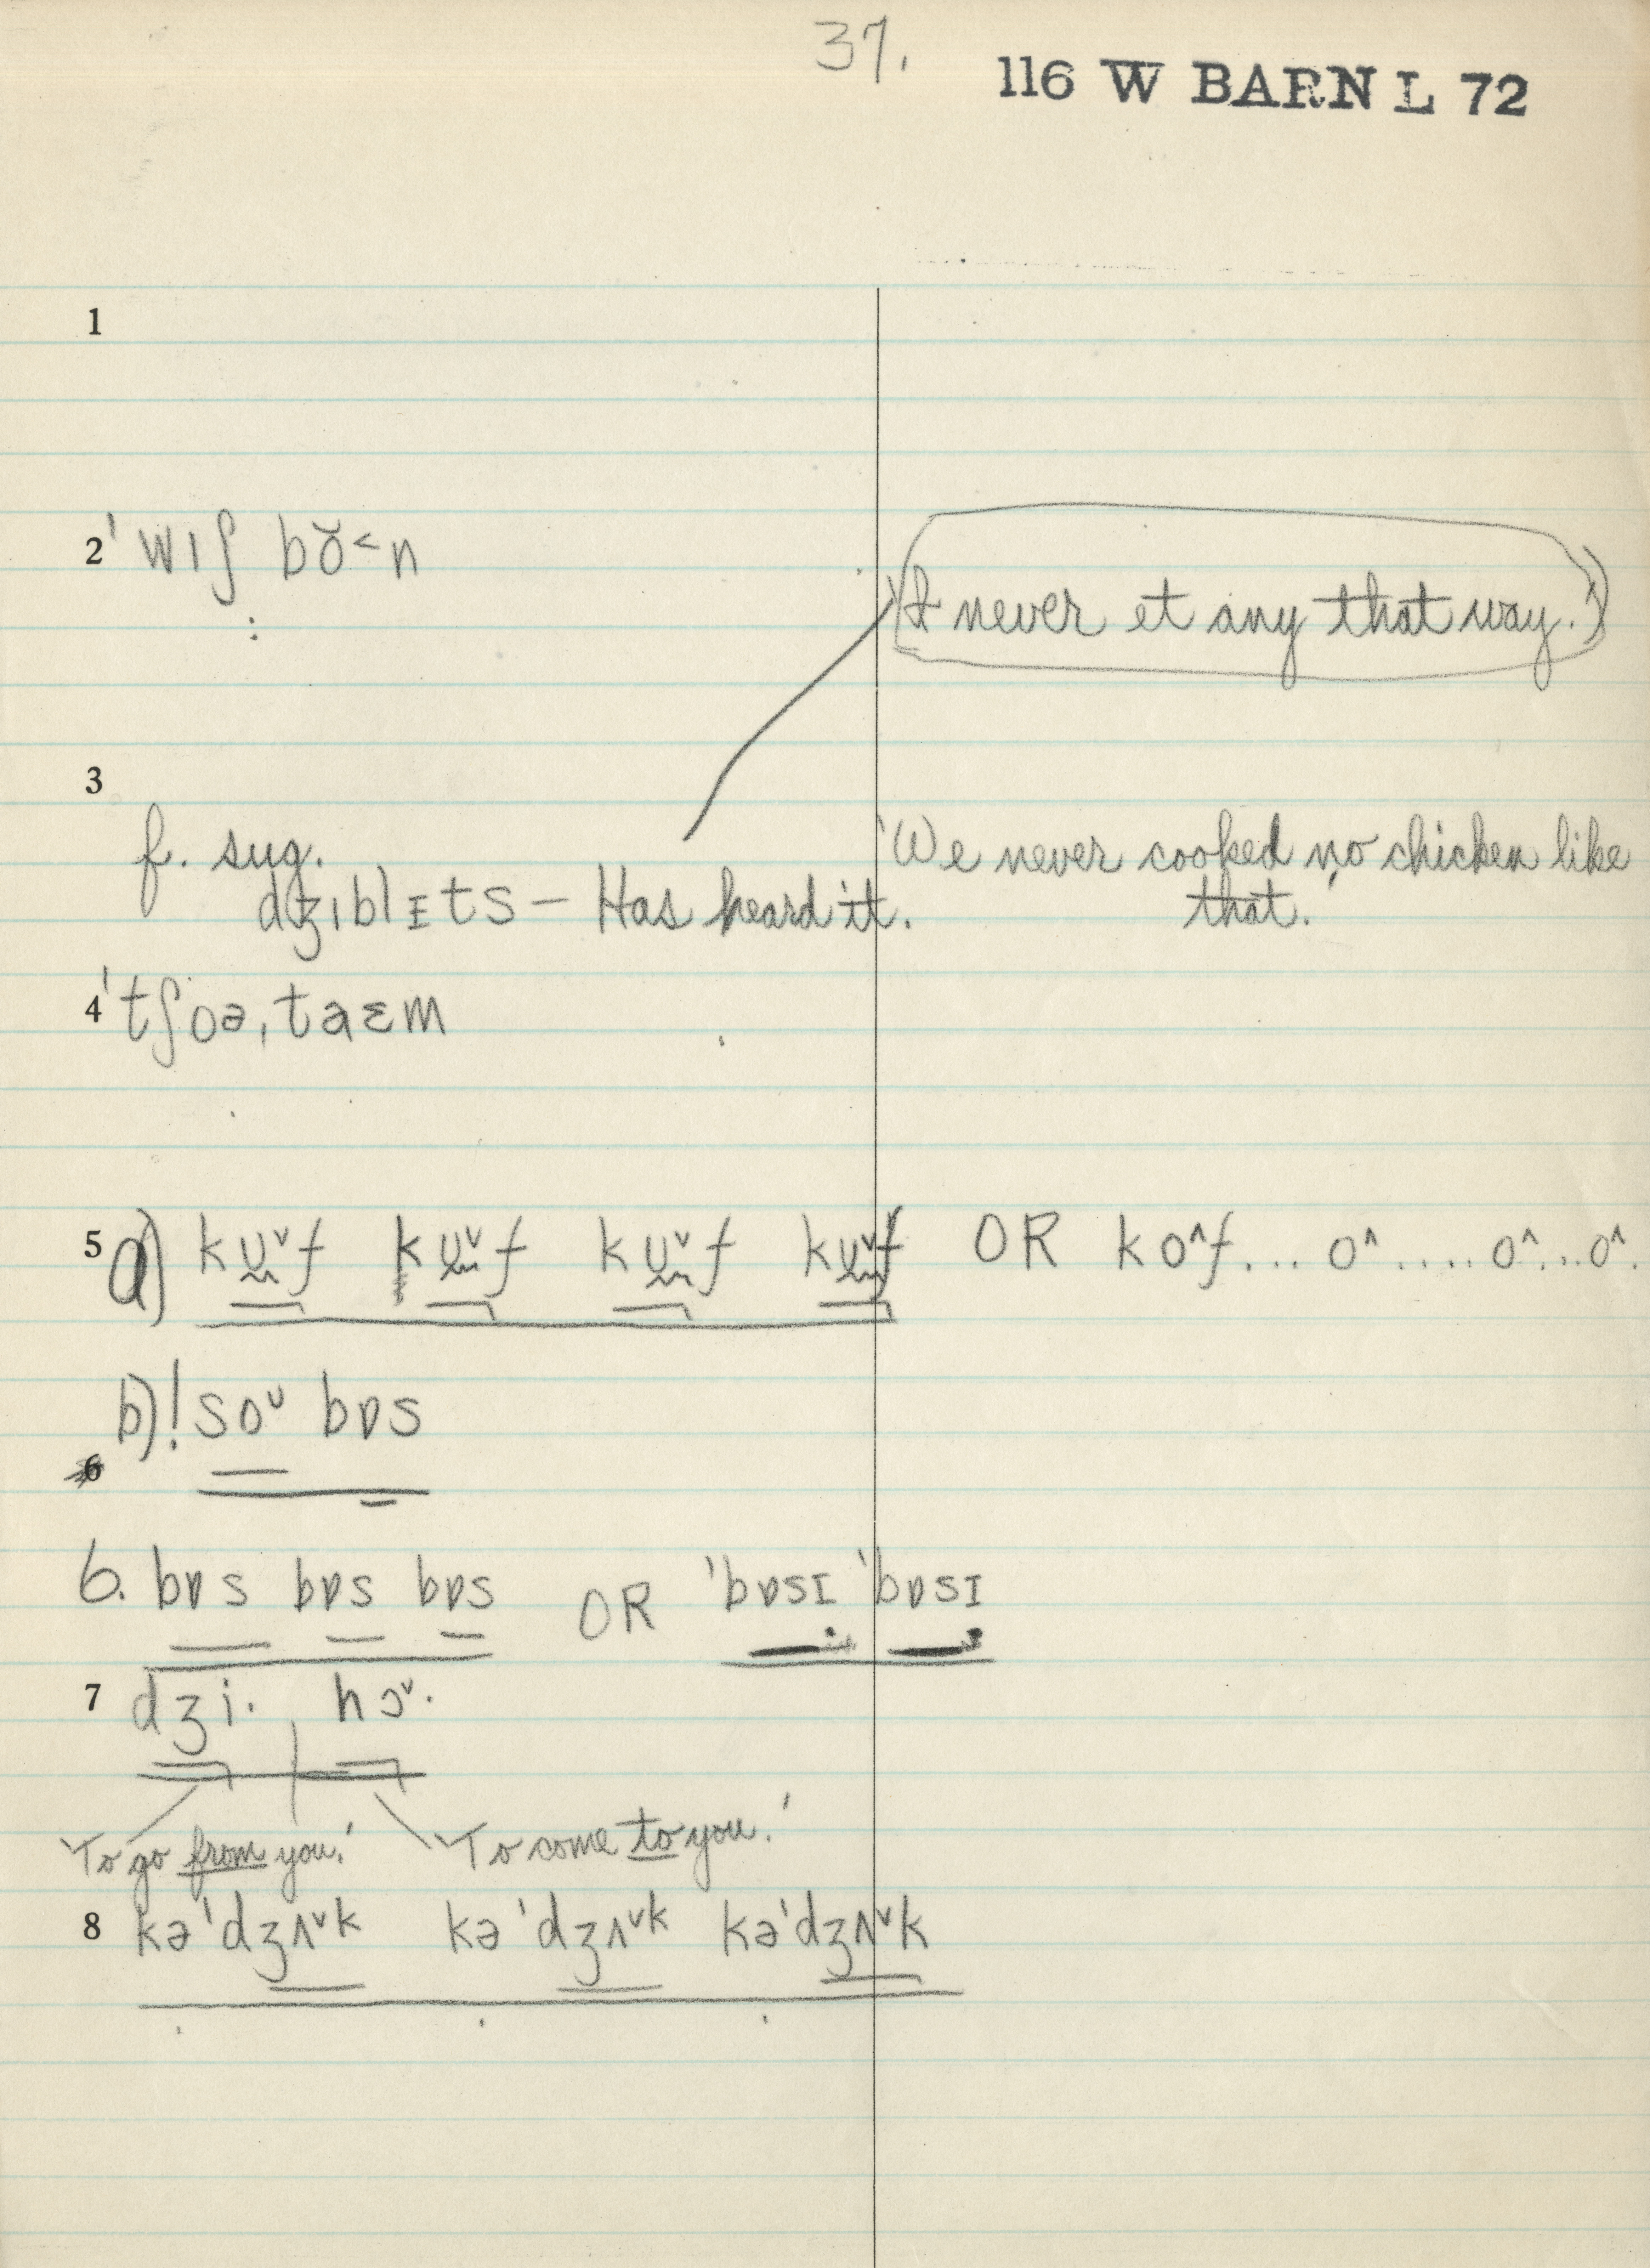 37.
116 W BARN L 72
1
2 ˈwɪʃ bŏ˂n
(I never et any that way.)
3
f. sug.
dʒɪblɪts – Has heard it.
'We never cooked no chicken like
that.'
4 ˈtʃoəˌtaɛm
5 a) kʊ˅f kʊ˅f kʊ˅f kʊ˅f OR ko^f... o^.... o^...o^.
b) ! so˅ bɒs
6
6. bɒs bɒs bɒs OR ˈbɒsɪ ˈbɒsɪ
7 dʒi· | hɔ˅·
'To go from you.' 'To come to you.'
8 kəˈdʒʌ˅k kəˈdʒʌ˅k kəˈdʒʌ˅k